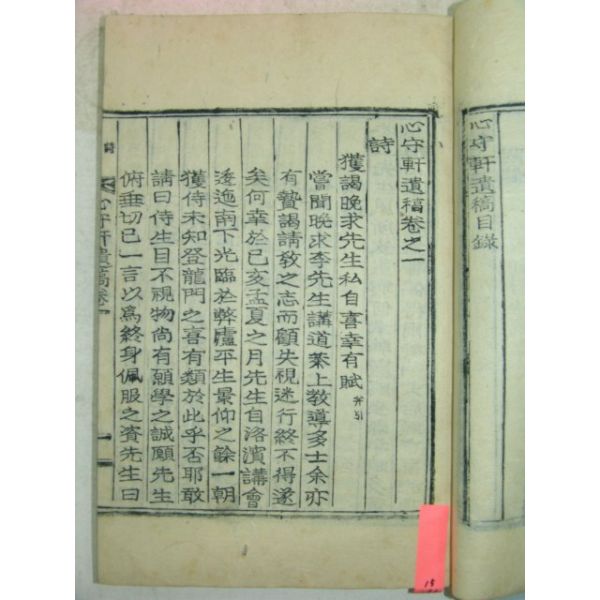 心守軒遺稿目錄
心守軒遺稿卷之一
詩
獲謁晩求先生私自喜幸有賦 并引
嘗聞晩求李先生講道 上教導多士余亦
有贄謁請教之志而顧失視迷行終不得遂
矣何幸於己亥孟夏之月先生自洛濱講會
逶迤南下光臨於弊廬平生景仰之餘一朝
獲侍未知登龍門之喜有類於此乎否耶敢
請曰侍生目不視物尚有願學之誠願先生
俯垂切己一言以爲終身佩服之資先生曰
心守軒遺稿卷一
詩
一
15